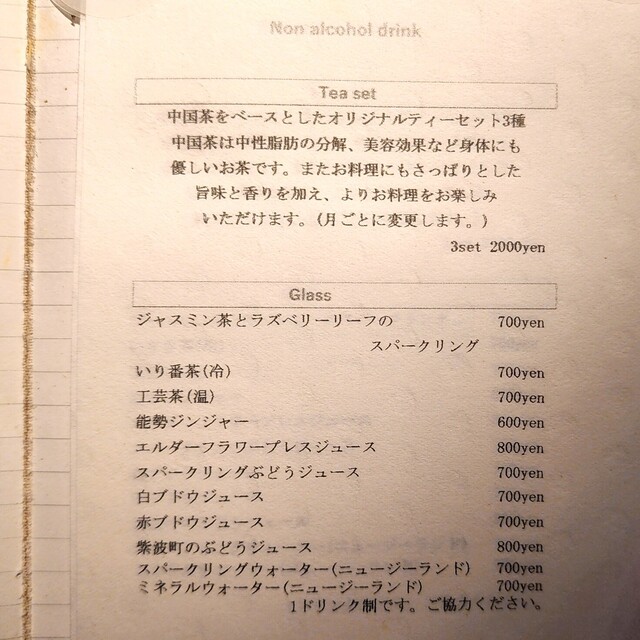 Non alcohol drink
Tea set
中国茶をベースとしたオリジナルティーセット3種
中国茶は中性脂肪の分解、美容効果など身体にも
優しいお茶です。またお料理にもさっぱりとした
旨味と香りを加え、よりお料理をお楽しみ
いただけます。(月ごとに変更します。)
3set 2000yen
Glass
ジャスミン茶とラズベリーリーフの 700yen
スパークリング
いり番茶(冷) 700yen
工芸茶(温) 700yen
能勢ジンジャー 600yen
エルダーフラワープレスジュース 800yen
スパークリングぶどうジュース 700yen
白ブドウジュース 700yen
赤ブドウジュース 700yen
紫波町のぶどうジュース 800yen
スパークリングウォーター(ニュージーランド) 700yen
ミネラルウォーター(ニュージーランド) 700yen
1ドリンク制です。ご協力ください。